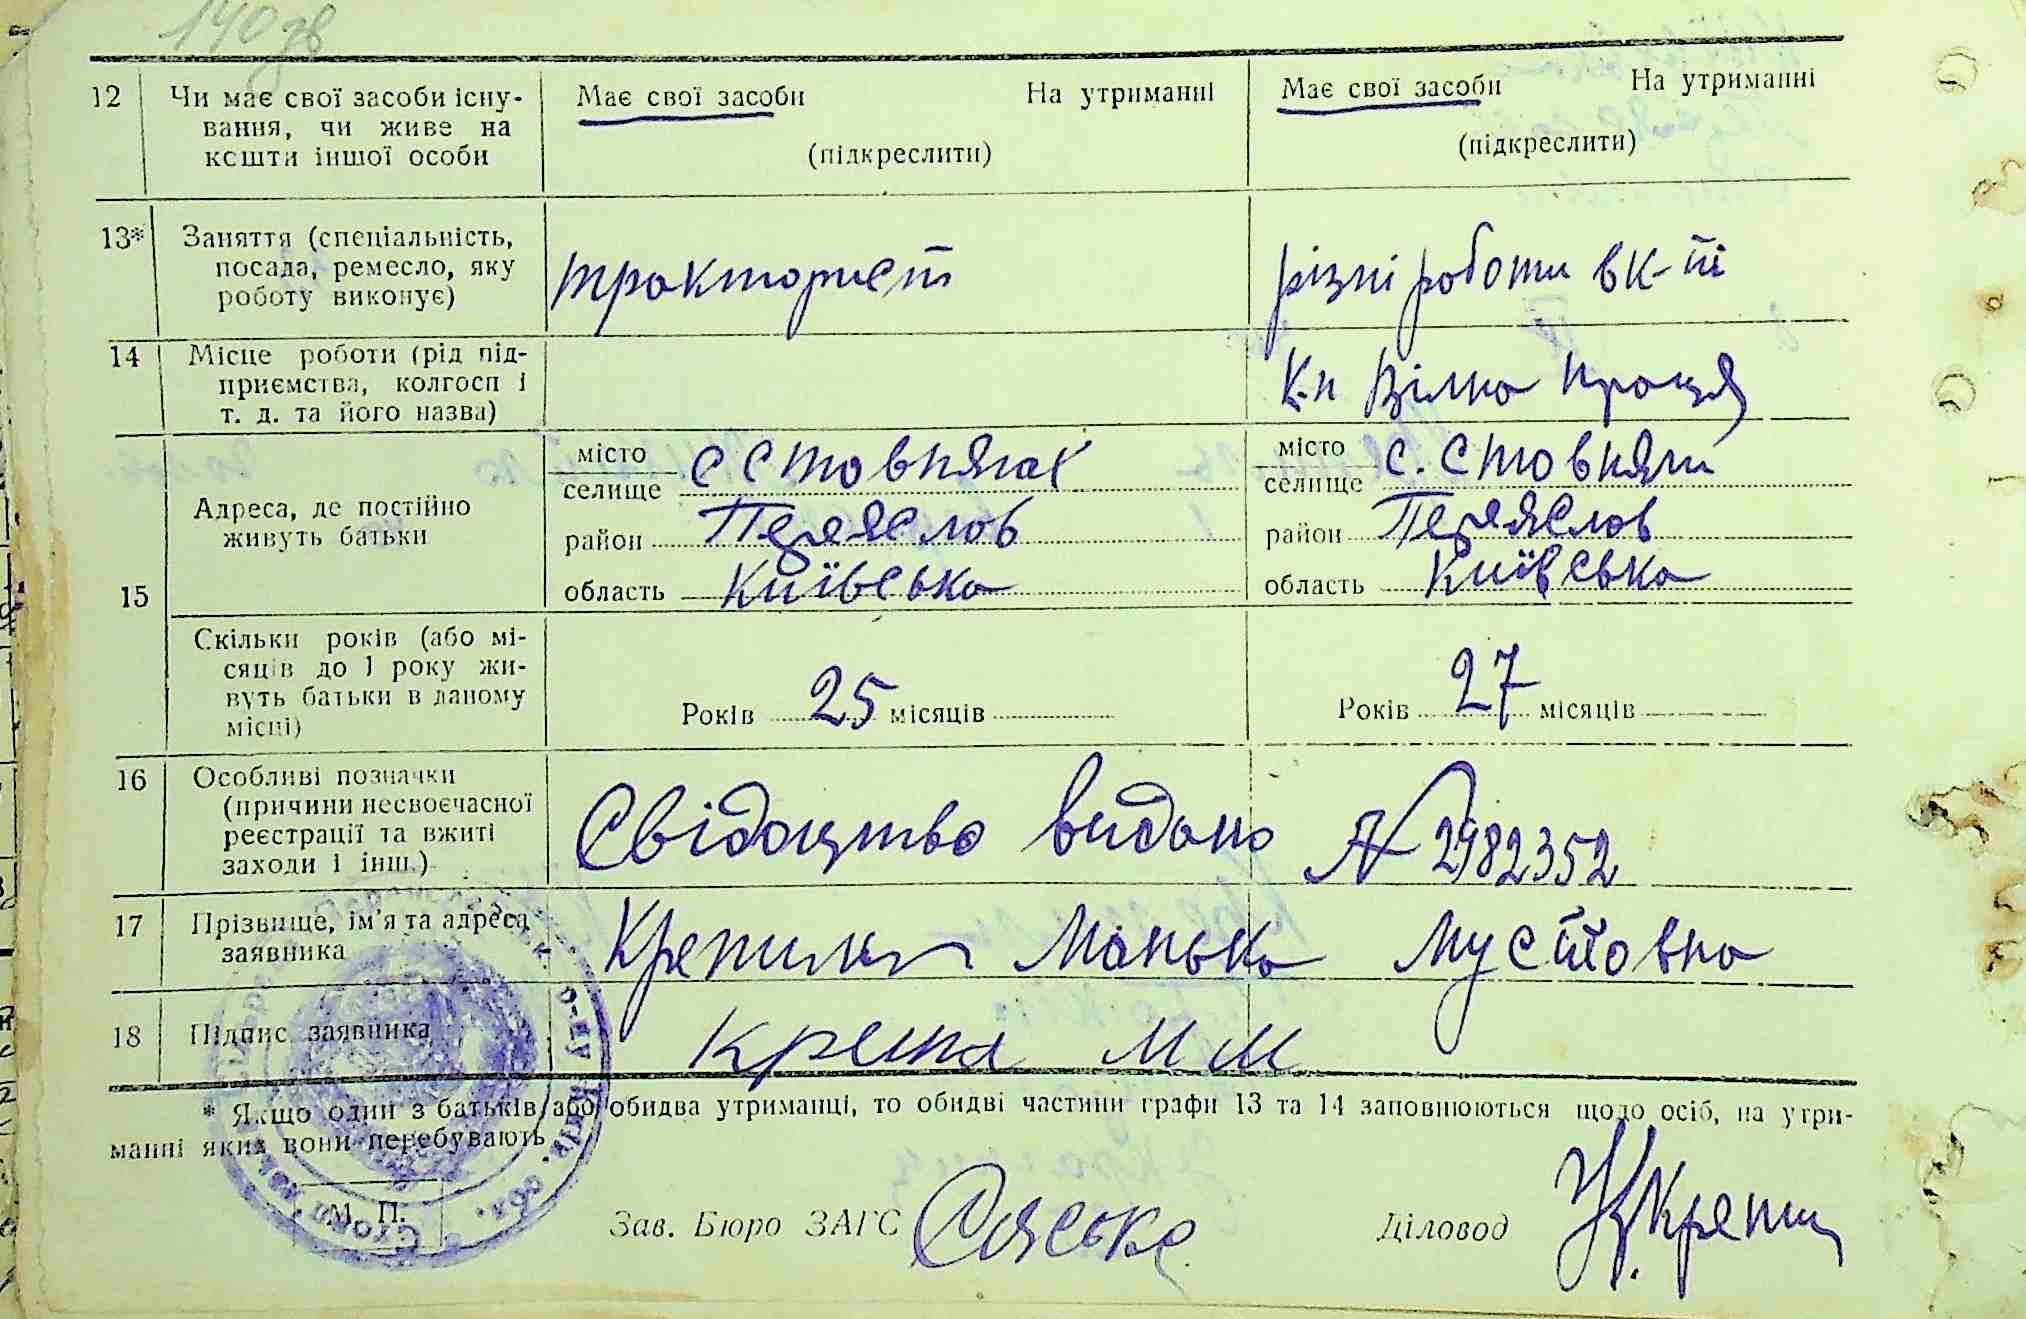 140 зв
12 Чи має свої засоби існу- Має свої засоби На утриманні Має свої засоби На утриманні
вання, чи живе на
кошти іншої особи (підкреслити) (підкреслити)
13* Заняття (спеціальність,
посада, ремесло, яку тракторист різні роботи в к-пі
роботу виконує)
14 Місце роботи (рід під-
приємства, колгосп і К-п Вілна праця
т. д. та його назва)
місто с Стовпягах місто с. Стовпяги
селище селище
Адреса, де постійно
живуть батьки район Переяслов район Переяслов
15 область Київська область Київська
Скільки років (або мі-
сяців до 1 року жи-
вуть батьки в даному Років 25 місяців Років 27 місяців
місці)
16 Особливі позначки
(причини несвоєчасної Свідоцтво видано № 2982352
реєстрації та вжиті
заходи і інш.)
17 Прізвище, ім'я та адреса
заявника Манька
18 Підпис заявника М М
* Якщо один з батьків або обидва утриманці, то обидві частини графи 13 та 14 заповнюються щодо осіб, на утри-
манні яких вони перебувають
М. П.
Зав. Бюро ЗАГС Діловод